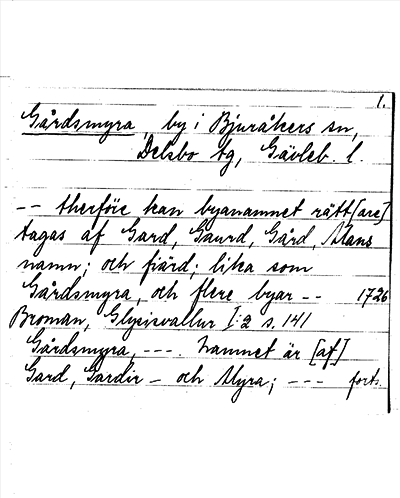 1.
Gårdsmyra, by i Bjuråkers sn,
Delsbo tg, Gävleb. l.
-- therföre kan byanamnet rätt[are]
tagas af Gard, Gaurd, Gård, Mans
namn; och fiärd; lika som
Gårdsmyra, och flere byar -- 1726
Broman, Glysisvallur I:2 s. 141
Gårdsmyra, ---. namnet är [af]
Gard, Gardir - och Myra; --- forts.